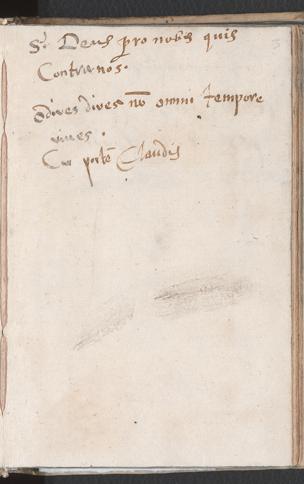 Si Deus pro nobis quis
Contra nos.
O dives dives nō omni tempore
vives.
portē Claudis